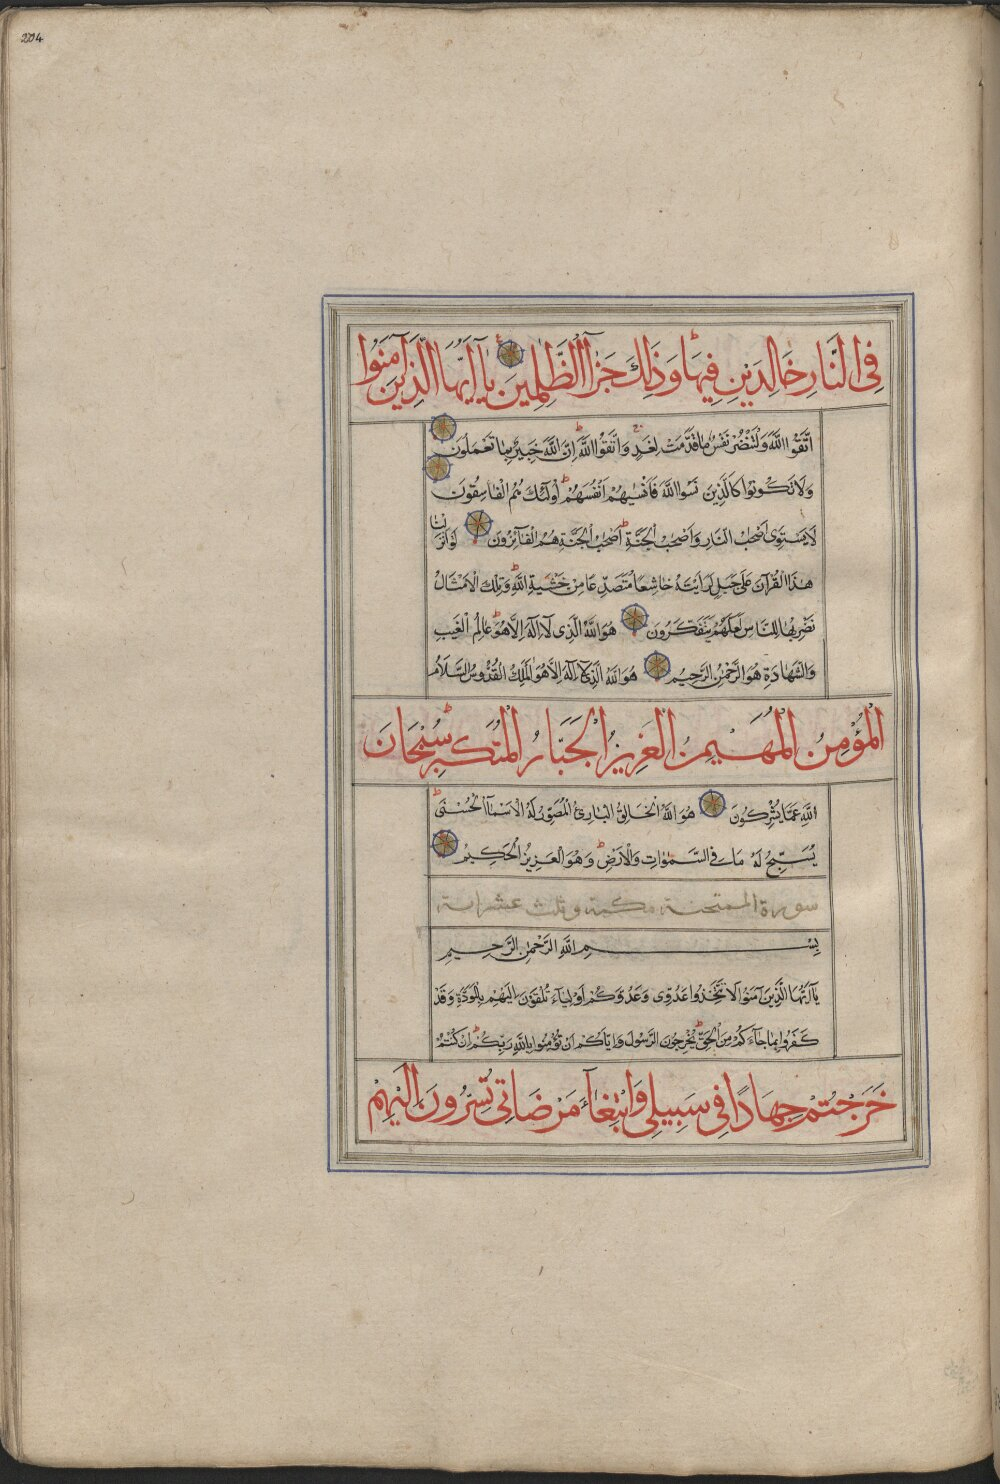 204
فِى النَّارِ خَالِدَيْنِ فِيهَا وَذٰلِكَ جَزٰٓاءُ الظّٰلِمِينَ يَآ اَيُّهَا الَّذِينَ اٰمَنُوا
اتَّقُوا اللّٰهَ وَلْتَنْظُرْ نَفْسٌ مَا قَدَّمَتْ لِغَدٍ وَاتَّقُوا اللّٰهَ اِنَّ اللّٰهَ خَبِيرٌ بِمَا تَعْمَلُونَ
وَلَا تَكُونُوا كَالَّذِينَ نَسُوا اللّٰهَ فَاَنْسٰيهُمْ اَنْفُسَهُمْ اُولٰٓئِكَ هُمُ الْفَاسِقُونَ
لَا يَسْتَوِى اَصْحٰبُ النَّارِ وَاَصْحٰبُ الْجَنَّةِ اَصْحٰبُ الْجَنَّةِ هُمُ الْفَآئِزُونَ لَوْ اَنْزَلْنَا
هٰذَا الْقُرْآنَ عَلٰى جَبَلٍ لَرَاَيْتَهُ خَاشِعًا مُتَصَدِّعًا مِنْ خَشْيَةِ اللّٰهِ وَتِلْكَ الْاَمْثَالُ
نَضْرِبُهَا لِلنَّاسِ لَعَلَّهُمْ يَتَفَكَّرُونَ هُوَ اللّٰهُ الَّذِى لَآ اِلٰهَ اِلَّا هُوَ عَالِمُ الْغَيْبِ
وَالشَّهَادَةِ هُوَ الرَّحْمٰنُ الرَّحِيمُ هُوَ اللّٰهُ الَّذِى لَآ اِلٰهَ اِلَّا هُوَ الْمَلِكُ الْقُدُّوسُ السَّلَامُ
الْمُؤْمِنُ الْمُهَيْمِنُ الْعَزِيزُ الْجَبَّارُ الْمُتَكَبِّرُ سُبْحَانَ
اللّٰهِ عَمَّا يُشْرِكُونَ هُوَ اللّٰهُ الْخَالِقُ الْبَارِئُ الْمُصَوِّرُ لَهُ الْاَسْمَآءُ الْحُسْنٰى
يُسَبِّحُ لَهُ مَا فِى السَّمٰوَاتِ وَالْاَرْضِ وَهُوَ الْعَزِيزُ الْحَكِيمُ
سورة الممتحنة مكية وثلث عشر اية
بِسْمِ اللّٰهِ الرَّحْمٰنِ الرَّحِيمِ
يَآ اَيُّهَا الَّذِينَ اٰمَنُوا لَا تَتَّخِذُوا عَدُوِّى وَعَدُوَّكُمْ اَوْلِيَآءَ تُلْقُونَ اِلَيْهِمْ بِالْمَوَدَّةِ وَقَدْ
كَفَرُوا بِمَا جَآءَكُمْ مِنَ الْحَقِّ يُخْرِجُونَ الرَّسُولَ وَاِيَّاكُمْ اَنْ تُؤْمِنُوا بِاللّٰهِ رَبِّكُمْ اِنْ كُنْتُمْ
خَرَجْتُمْ جِهَادًا فِى سَبِيلِى وَابْتِغَآءَ مَرْضَاتِى تُسِرُّونَ اِلَيْهِمْ